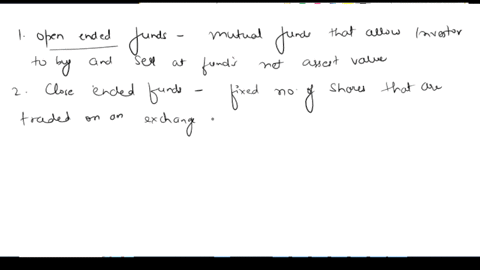 1. open ended funds - mutual funds that allow investor
to by and sell at fund's net assert value
2. Close ended funds - fixed no. of shares that are
traded on an exchange.